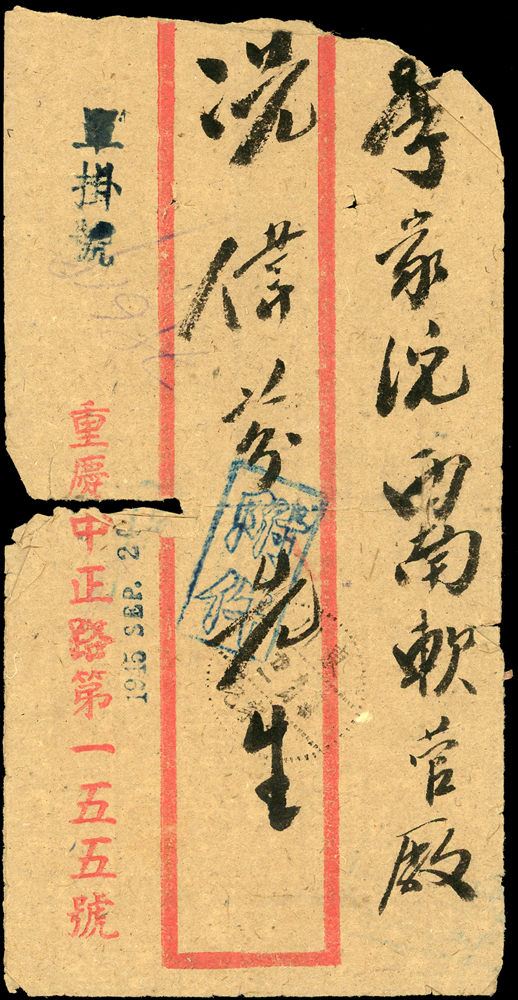 李家沱西南軟管廠
冼偉芬先生
單掛號
重慶中正路第一五五號
1945 SEP. 2